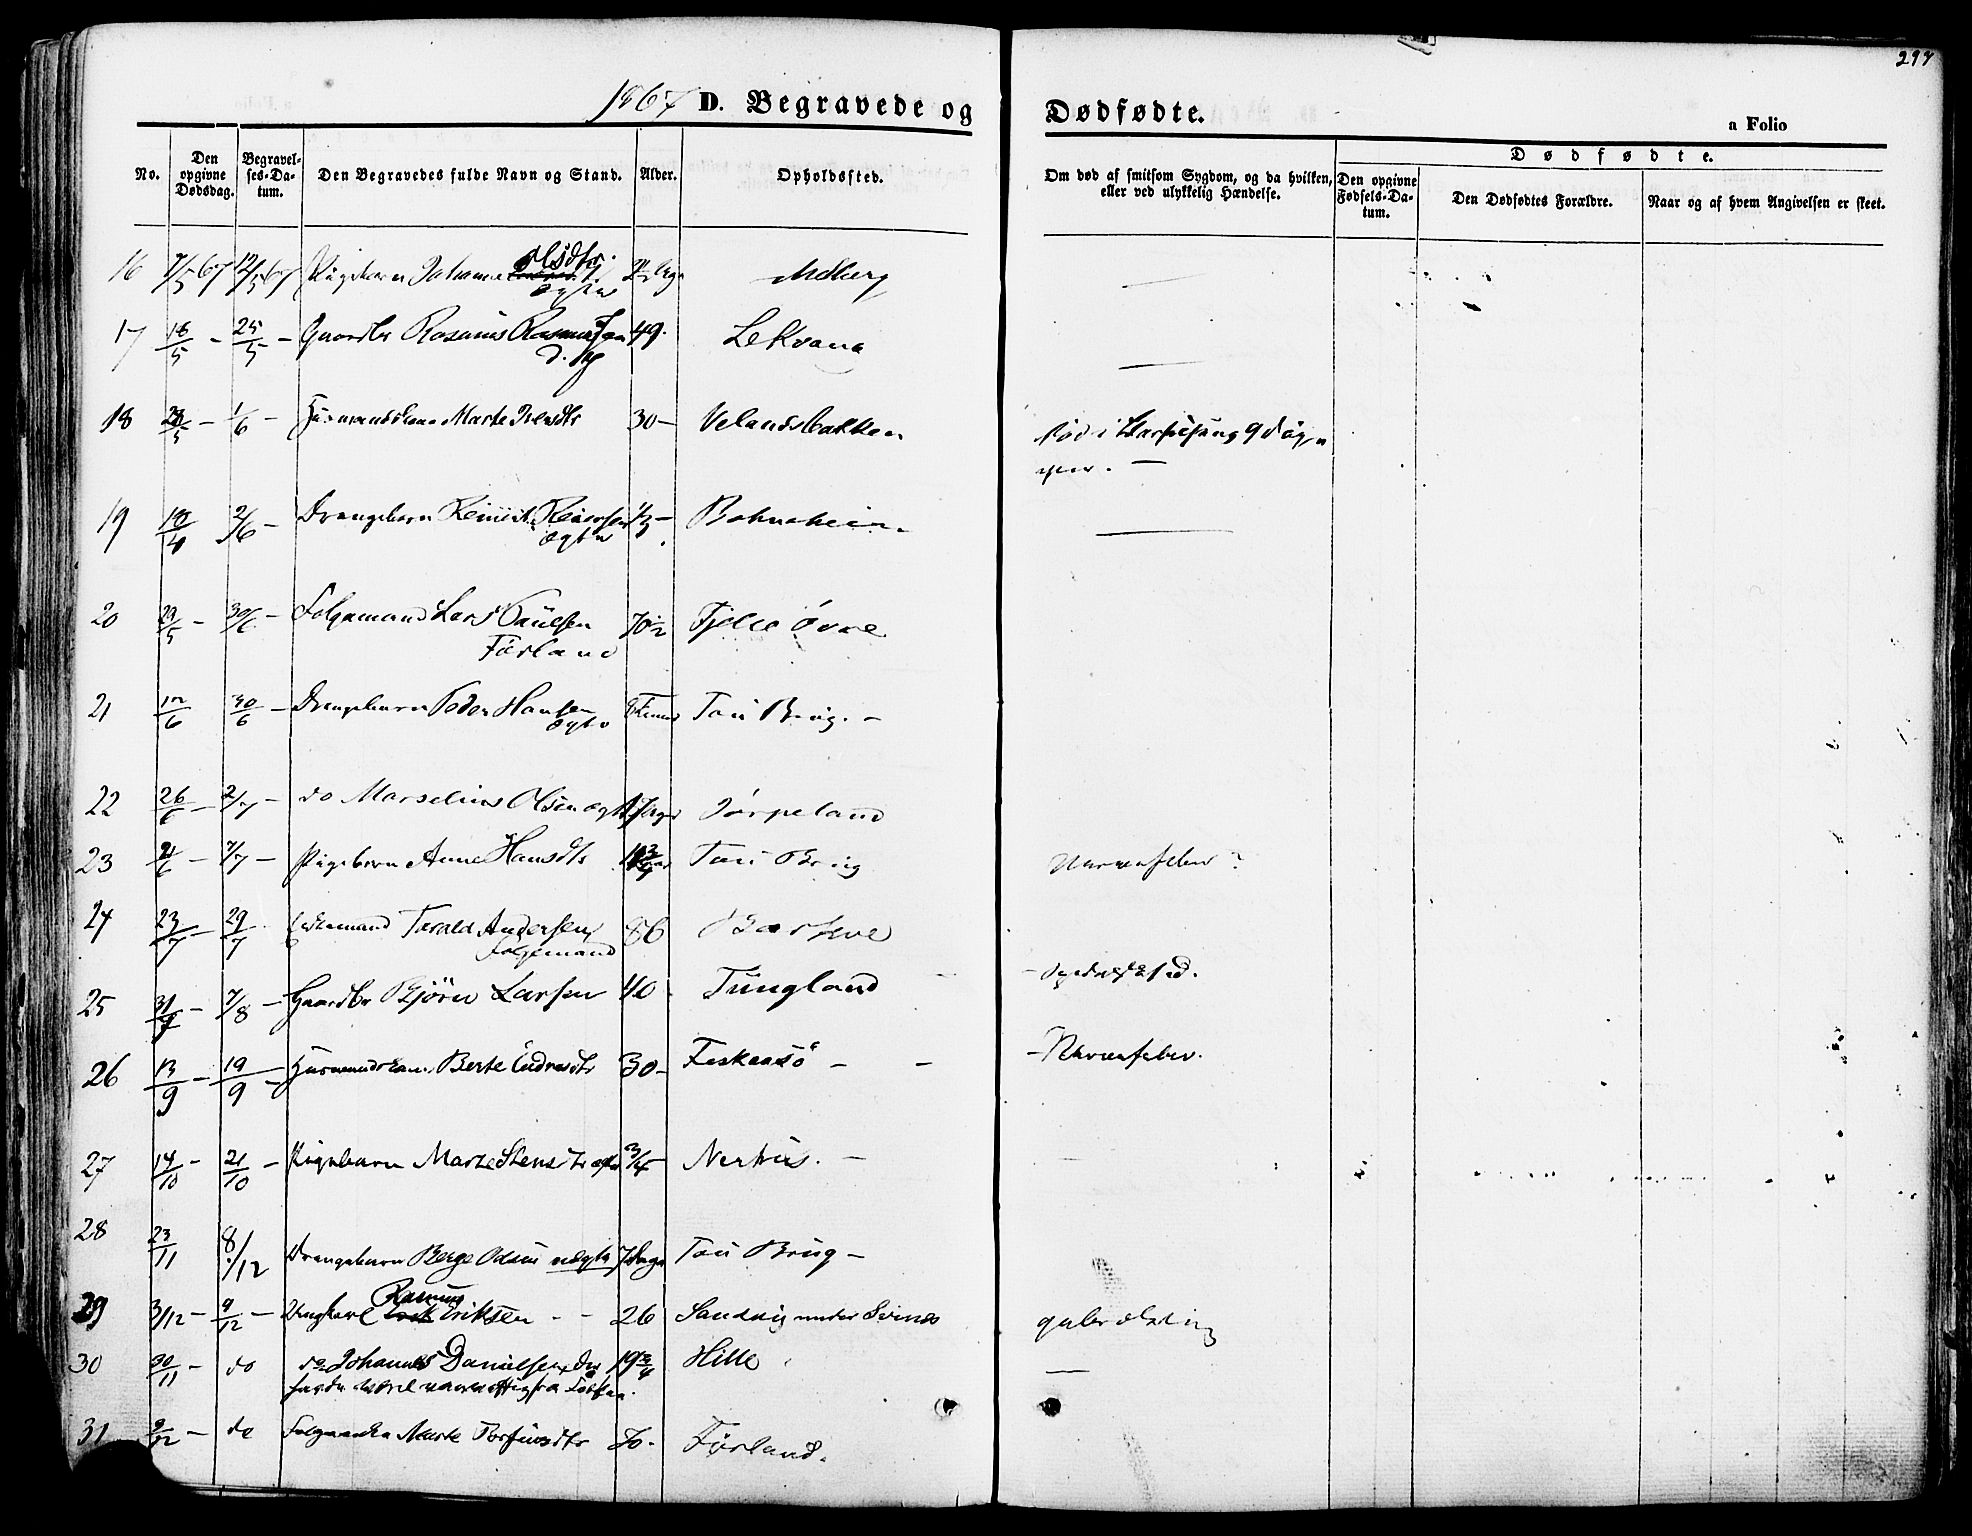 294
1867 D. Begravede og Dødfødte.
a Folio
No.
Den opgivne Dødsdag.
Begravelses-Datum.
Den Begravedes fulde Navn og Stand.
Alder.
Opholdssted.
Om død af smitsom Sygdom, og da hvilken, eller ved ulykkelig Hændelse.
Dødfødte.
Den opgivne Fødsels-Datum.
Den Dødfødtes Forældre.
Naar og af hvem Angivelsen er skeet.
16 7/5 67 12/5 67 Pigebarn Johanne Olsdtr. ægte Meberg
17 18/5 - 25/5 - Gaardbr Rasmus Rasmussen 49. Lekvang
18 28/5 - 1/6 - Husmandskone Marte Iversdtr 30 - Velandsbakken
død i Barselseng 9 Dage
19 18/4 2/6 - Drengebarn Reinert Reinersen ægte 1/3 - Bohnehein.
20 29/5 - 30/6 - Folgemand Lars Paulsen 70 1/2 Fjelde Øvre
Førland
21 12/6 30/6 - Drengebarn Peder Hansen ægte 8 Timer Tau Brug. -
22 26/6 - 2/7 - do Marselius Olsen ægte Dage Jørpeland
23 21/6 - 7/7 - Pigebarn Anne Hansdtr Tau Brug Nervefeber?
24 23/7 - 29/7 Enkemand Tarald Andersen 86
Folgemand
25 31/7 - 7/8 - Gaardbr Bjørn Larsen 40. Tungland
26 13/9 - 19/9 - Husmandskone Berte Endresdtr 30 - Fiskaasö - Nervefeber.
27 14/10 - 21/10 - Pigebarn Marte Stensdtr ægte 3/4 - Nerhus. -
28 23/11 8/12 Drengebarn Berge Odsen uægte 7 Dage Tau Brug -
29 3/12 - 9/12 - Ungkarl Rasmus Eriksen - - 26 Sandvig under Svines
30 30/11 - do do Johannes Danielsen 19 3/4 Hille
31 2/12 - do Folgeenke Marte Torfinsdtr 70. Førland.